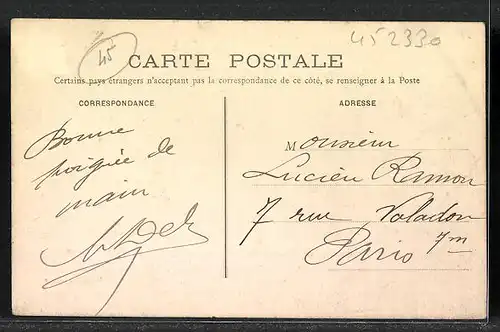 45
452330
CARTE POSTALE
Certains pays étrangers n'acceptant pas la correspondance de ce côté, se renseigner à la Poste
CORRESPONDANCE
ADRESSE
Bonne
poignée de
main
Monsieur
Lucien Ramon
7 rue Valadon
Paris 7m